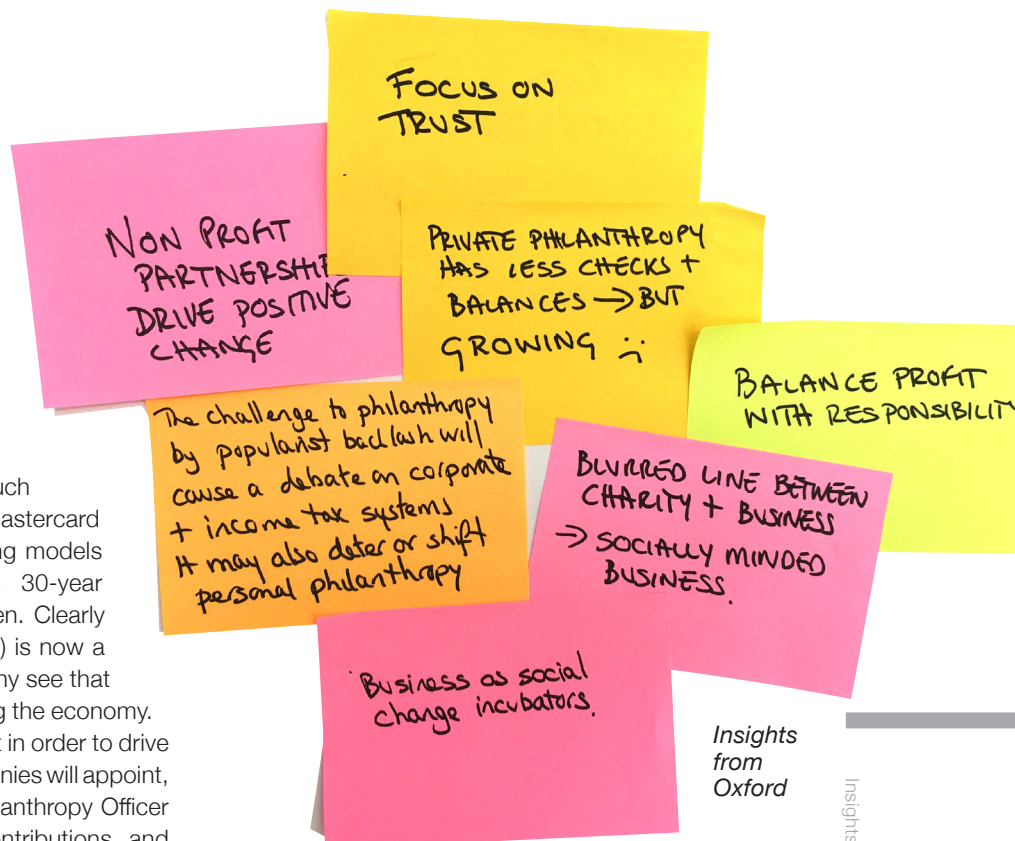 FOCUS ON
TRUST
NON PROFIT
PARTNERSHIP
DRIVE POSITIVE
CHANGE
PRIVATE PHILANTHROPY
HAS LESS CHECKS +
BALANCES → BUT
GROWING :(
BALANCE PROFIT
WITH RESPONSIBILITY
The challenge to philanthropy
by popularist backlash will
cause a debate on corporate
+ income tax systems
It may also deter or shift
personal philanthropy
BLURRED LINE BETWEEN
CHARITY + BUSINESS
→ SOCIALLY MINDED
BUSINESS.
Business as social
change incubators.
uch
astercard
ng models
30-year
en. Clearly
) is now a
ny see that
g the economy.
t in order to drive
nies will appoint,
anthropy Officer
ntributions and
Insights
from
Oxford
Insights